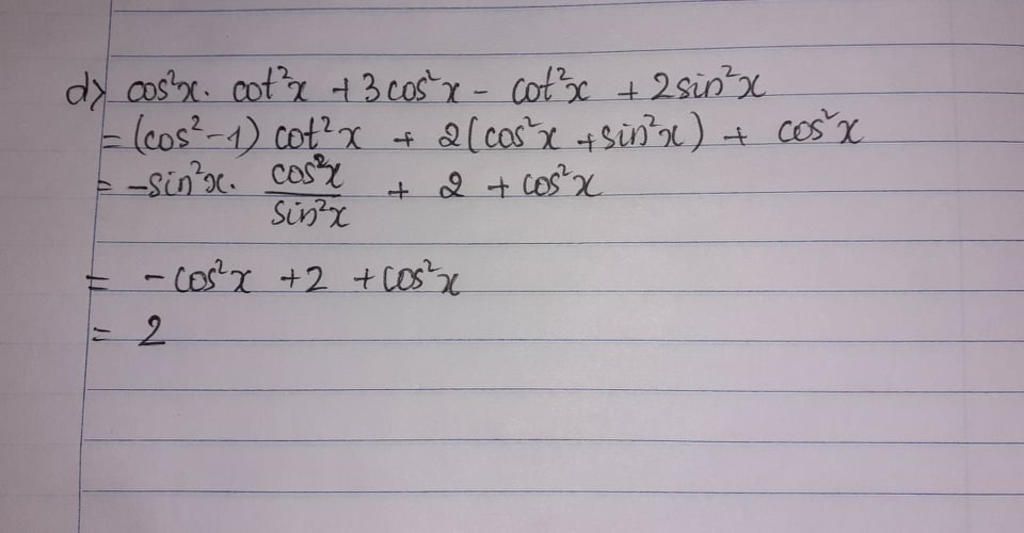 d> cos²x. cot²x + 3cos²x - cot²x + 2sin²x
= (cos²-1) cot²x + 2(cos²x + sin²x) + cos²x
= -sin²x. cos²x/sin²x + 2 + cos²x
= -cos²x + 2 + cos²x
= 2